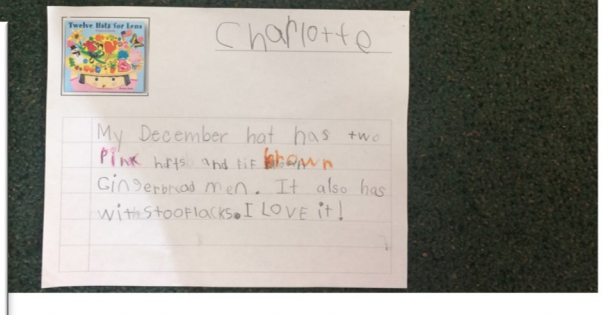 Twelve Hats for Lena
Charlotte
My December hat has two
Pink hrts and fif brown
Gingerbread men. It also has
with stooflacks. I LOVE it!